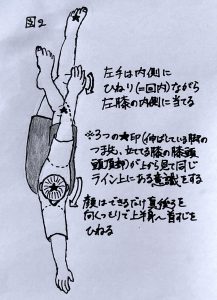 図2
左手は内側に
ひねり(=回内)ながら
左膝の内側に当てる
※3つの★印(伸ばしている脚の
つま先、立てる膝の膝頭
頭頂部)が上から見て同じ
ライン上にある意識をする
顔はできるだけ真後ろを
向くつもりで上半身〜首すじを
ひねる